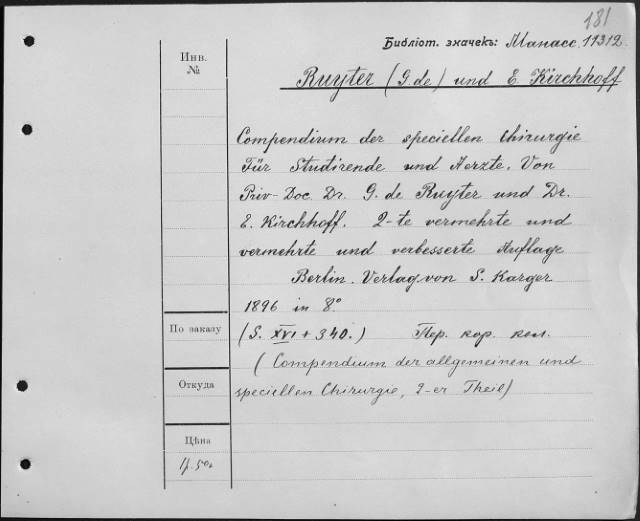 181
Библіот. значекъ: Манасс. 11312.
Инв.
№
Ruyter (G. de) und E. Kirchhoff
Compendium der speciellen Chirurgie
Für Studirende und Aerzte. Von
Priv-Doc. Dr. G. de Ruyter und Dr.
E. Kirchhoff. 2-te vermehrte und
vermehrte und verbesserte Auflage
Berlin. Verlag von S. Karger
1896 in 8°.
По заказу
(S. XVI + 340.) Пер. кор. кол.
(Compendium der allgemeinen und
Откуда
speciellen Chirurgie, 2-er Theil)
Цѣна